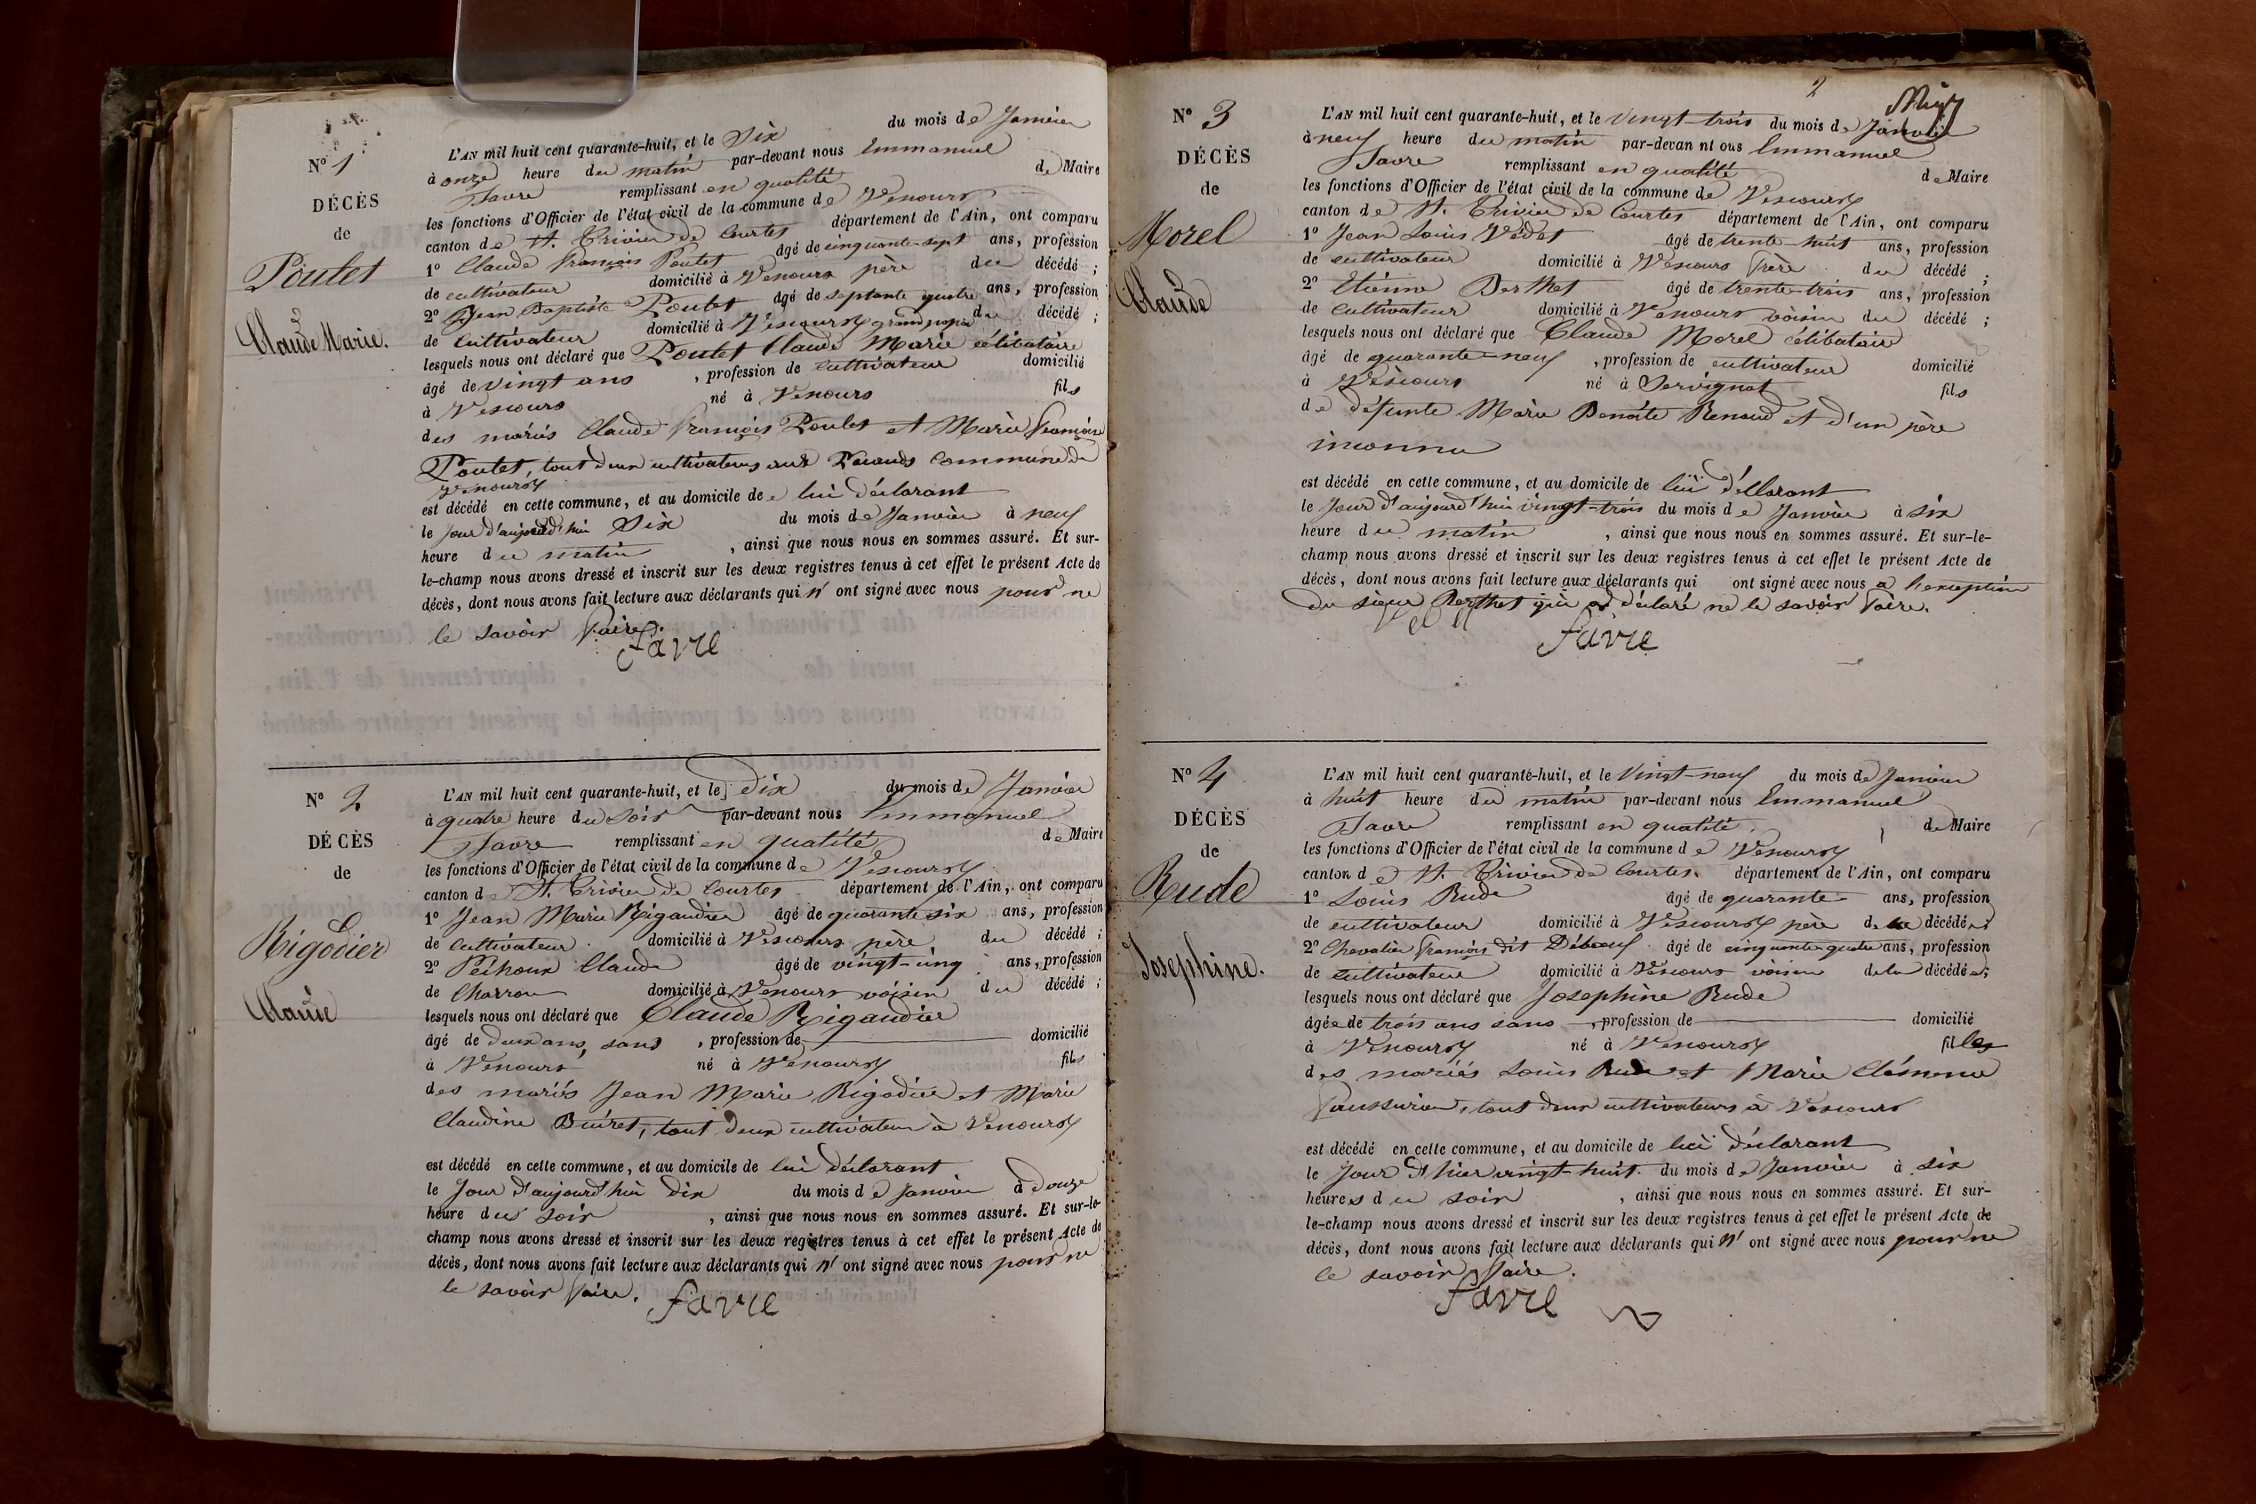 Nº 1
DÉCÈS
de
Poulet
Claude Marie.
L'AN mil huit cent quarante-huit, et le Six du mois de Janvier
à onze heure du matin par-devant nous Emmanuel
Favre remplissant en qualité de Maire
les fonctions d'Officier de l'état civil de la commune de Vescours
canton de St. Trivier de Courtes département de l'Ain, ont comparu
1º Claude François Poulet âgé de cinquante-sept ans, profession
de cultivateur domicilié à Vescours père du décédé ;
2º Jean Baptiste Poulet âgé de septante quatre ans, profession
de cultivateur domicilié à Vescours grand père du décédé ;
lesquels nous ont déclaré que Poulet Claude Marie célibataire
âgé de vingt ans , profession de cultivateur domicilié
à Vescours né à Vescours fils
des mariés Claude François Poulet et Marie Françoise
Poulet, tout deux cultivateurs aux commune de
Vescours
est décédé en cette commune, et au domicile de lui déclarant
le Jour d'aujourd'hui Six du mois de Janvier à neuf
heure du matin , ainsi que nous nous en sommes assuré. Et sur-
le-champ nous avons dressé et inscrit sur les deux registres tenus à cet effet le présent Acte de
décès, dont nous avons fait lecture aux déclarants qui n' ont signé avec nous pour ne
le savoir faire.
Favre
Nº 2
DÉCÈS
de
Rigodier
Claude
L'AN mil huit cent quarante-huit, et le dix du mois de Janvier
à quatre heure du soir par-devant nous Emmanuel
Favre remplissant en qualité de Maire
les fonctions d'Officier de l'état civil de la commune de Vescours
canton de St. Trivier de Courtes département de l'Ain, ont comparu
1º Jean Marie Rigaudier âgé de quarante six ans, profession
de cultivateur domicilié à Vescours père du décédé ;
2º Péchoux Claude âgé de vingt-cinq ans, profession
de Charron domicilié à Vescours voisin du décédé ;
lesquels nous ont déclaré que Claude Rigaudier
âgé de deux ans, sans , profession de domicilié
à Vescours né à Vescours fils
des mariés Jean Marie Rigodier et Marie
Claudine Buiret, tout deux cultivateur à Vescours
est décédé en cette commune, et au domicile de lui déclarant
le Jour d'aujourd'hui dix du mois de Janvier à douze
heure du soir , ainsi que nous nous en sommes assuré. Et sur-le-
champ nous avons dressé et inscrit sur les deux registres tenus à cet effet le présent Acte de
décès, dont nous avons fait lecture aux déclarants qui n' ont signé avec nous pour ne
le savoir faire.
Favre
2
Nº 3
DÉCÈS
de
Morel
Claude
L'AN mil huit cent quarante-huit, et le vingt-trois du mois de Janvier
à neuf heure du matin par-devan nt ous Emmanuel
Favre remplissant en qualité de Maire
les fonctions d'Officier de l'état civil de la commune de Vescours
canton de St. Trivier de Courtes département de l'Ain, ont comparu
1º Jean Louis Védet âgé de trente-huit ans, profession
de cultivateur domicilié à Vescours frère du décédé ;
2º Etienne Berthet âgé de trente-trois ans, profession
de cultivateur domicilié à Vescours voisin du décédé ;
lesquels nous ont déclaré que Claude Morel célibataire
âgé de quarante-neuf , profession de cultivateur domicilié
à Vescours né à Servignat fils
de défunte Marie Benoite Renaud et d'un père
inconnu
est décédé en cette commune, et au domicile de lui déclarant
le Jour d'aujourd'hui vingt-trois du mois de Janvier à six
heure du matin , ainsi que nous nous en sommes assuré. Et sur-le-
champ nous avons dressé et inscrit sur les deux registres tenus à cet effet le présent Acte de
décès, dont nous avons fait lecture aux déclarants qui ont signé avec nous à l'exception
du sieur Berthet qui a déclaré ne le savoir faire.
Favre
Nº 4
DÉCÈS
de
Rude
Josephine.
L'AN mil huit cent quarante-huit, et le Vingt-neuf du mois de Janvier
à huit heure du matin par-devant nous Emmanuel
Favre remplissant en qualité de Maire
les fonctions d'Officier de l'état civil de la commune de Vescours
canton de St. Trivier de Courtes. département de l'Ain, ont comparu
1º Louis Rude âgé de quarante ans, profession
de cultivateur domicilié à Vescours père de la décédée ;
2º Chevalier François dit Débœuf âgé de cinquante-quatre ans, profession
de cultivateur domicilié à Vescours voisin de la décédée ;
lesquels nous ont déclaré que Josephine Rude
âgée de trois ans sans , profession de domicilié
à Vescours né à Vescours fille
des mariés Louis Rude et Marie Clémence
tout deux cultivateurs à Vescours
est décédé en cette commune, et au domicile de lui déclarant
le Jour d'hier vingt-huit du mois de Janvier à six
heures du soir , ainsi que nous nous en sommes assuré. Et sur-
le-champ nous avons dressé et inscrit sur les deux registres tenus à cet effet le présent Acte de
décès, dont nous avons fait lecture aux déclarants qui n' ont signé avec nous pour ne
le savoir faire.
Favre